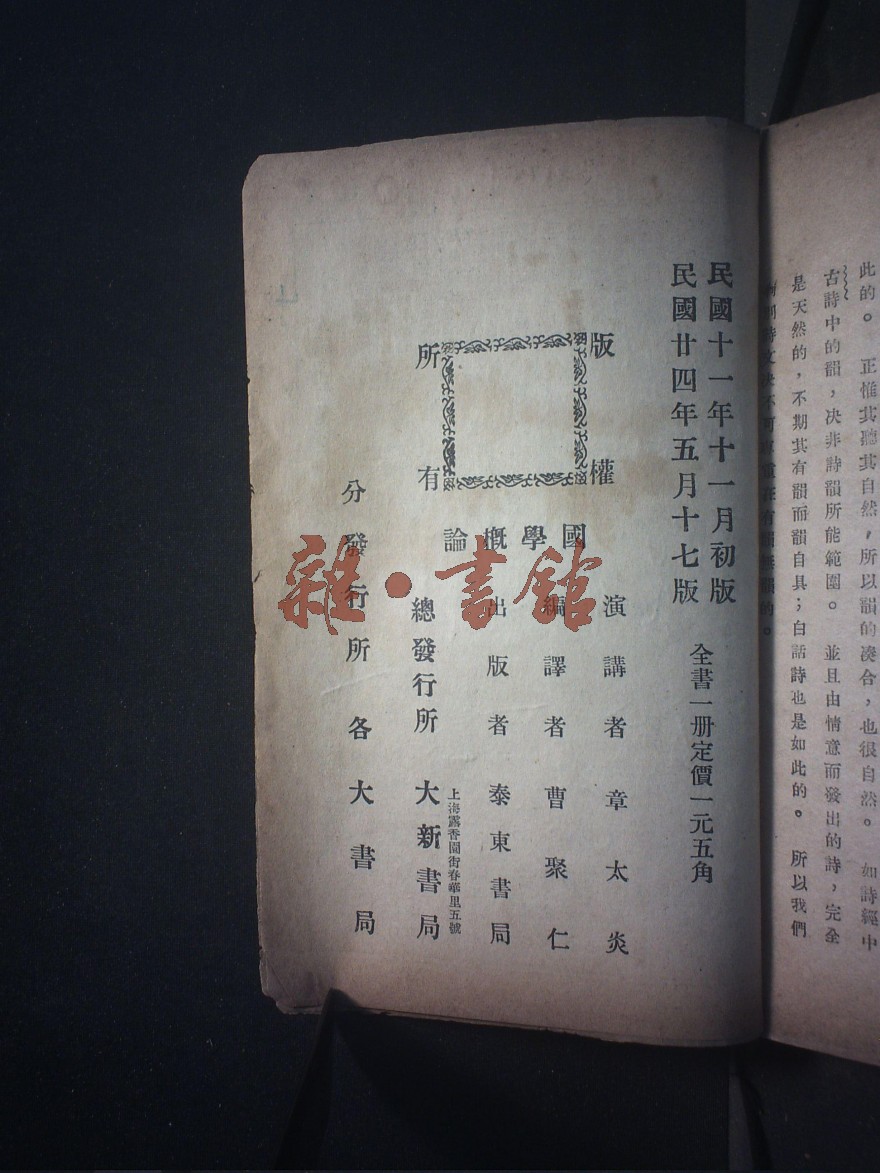 此的。　正惟其聽其自然，所以韻的凑合，也很自然。　如詩經中
古詩中的韻，决非詩韻所能範圍。　並且由情意而發出的詩，完全
是天然的，不期其有韻而韻自具；白話詩也是如此的。　所以我們
民國十一年十一月初版
民國廿四年五月十七版
全書一册定價一元五角
版權
所有
國學概論
演講者章太炎
編譯者曹聚仁
出版者泰東書局
上海露香園街春華里五號
總發行所　大新書局
分發行所　各大書局
雜·書館